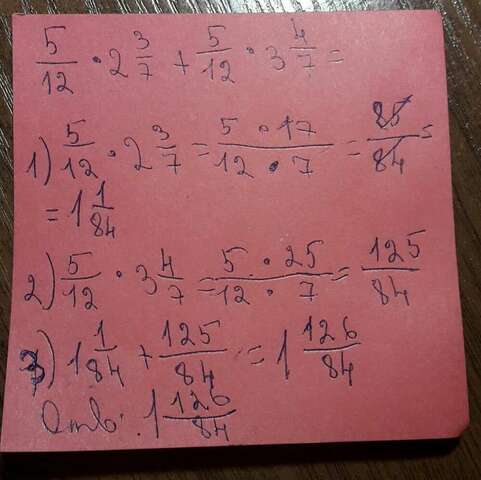 5/12 · 2 3/7 + 5/12 · 3 4/7 =
1) 5/12 · 2 3/7 = 5 · 17/12 · 7 = 85/84 =
= 1 1/84
2) 5/12 · 3 4/7 = 5 · 25/12 · 7 = 125/84
3) 1 1/84 + 125/84 = 1 126/84
Отв: 1 126/84